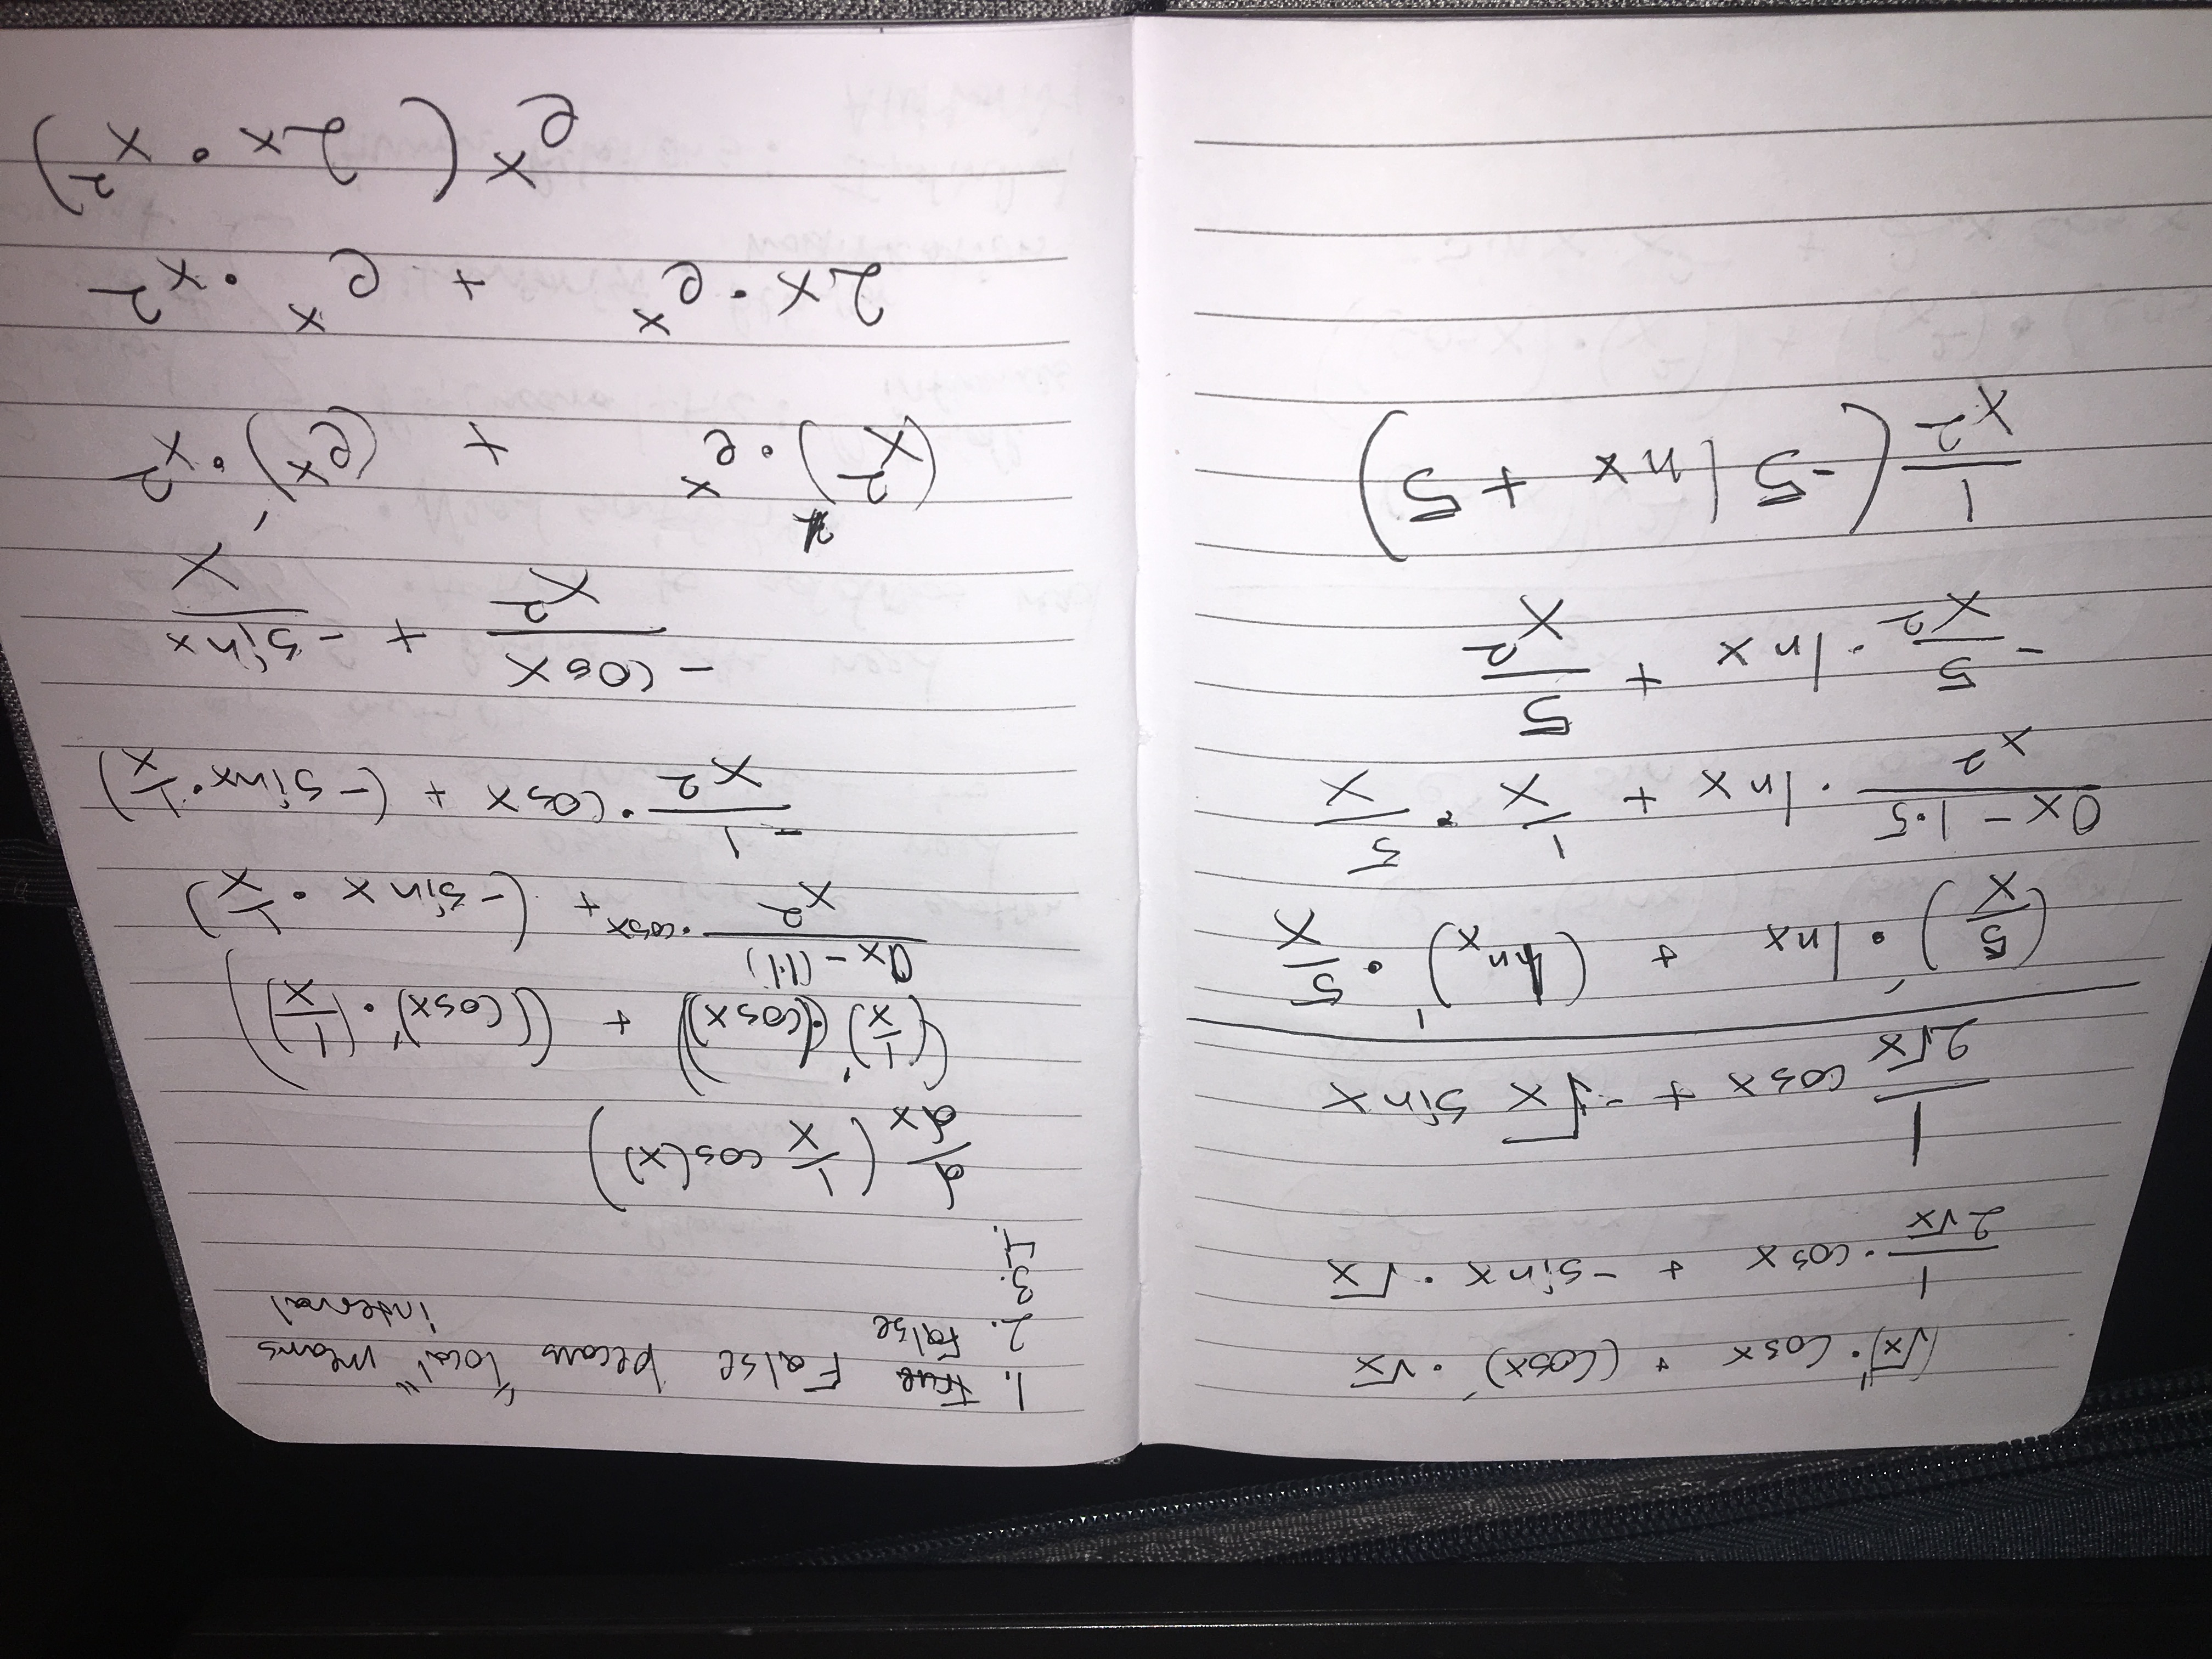 (√x)' · cosx + (cosx)' · √x
1/(2√x) · cosx + -sinx · √x
1/(2√x) cosx + -√x sinx
(5/x)' · lnx + (lnx)' · 5/x
(0x - 1·5)/x² · lnx + 1/x · 5/x
-5/x² · lnx + 5/x²
1/x² (-5 lnx + 5)
1. True False becaus "local" means
interval
2. False
3.
4.
d/dx (1/x cos(x))
((1/x)' · (cosx)) + ((cosx)' · (1/x))
(0x - (1·1))/x² · cosx + (-sinx · 1/x)
-1/x² · cosx + (-sinx · 1/x)
-cosx/x² + -sinx/x
(x²)' · eˣ + (eˣ)' · x²
2x · eˣ + eˣ · x²
eˣ(2x · x²)